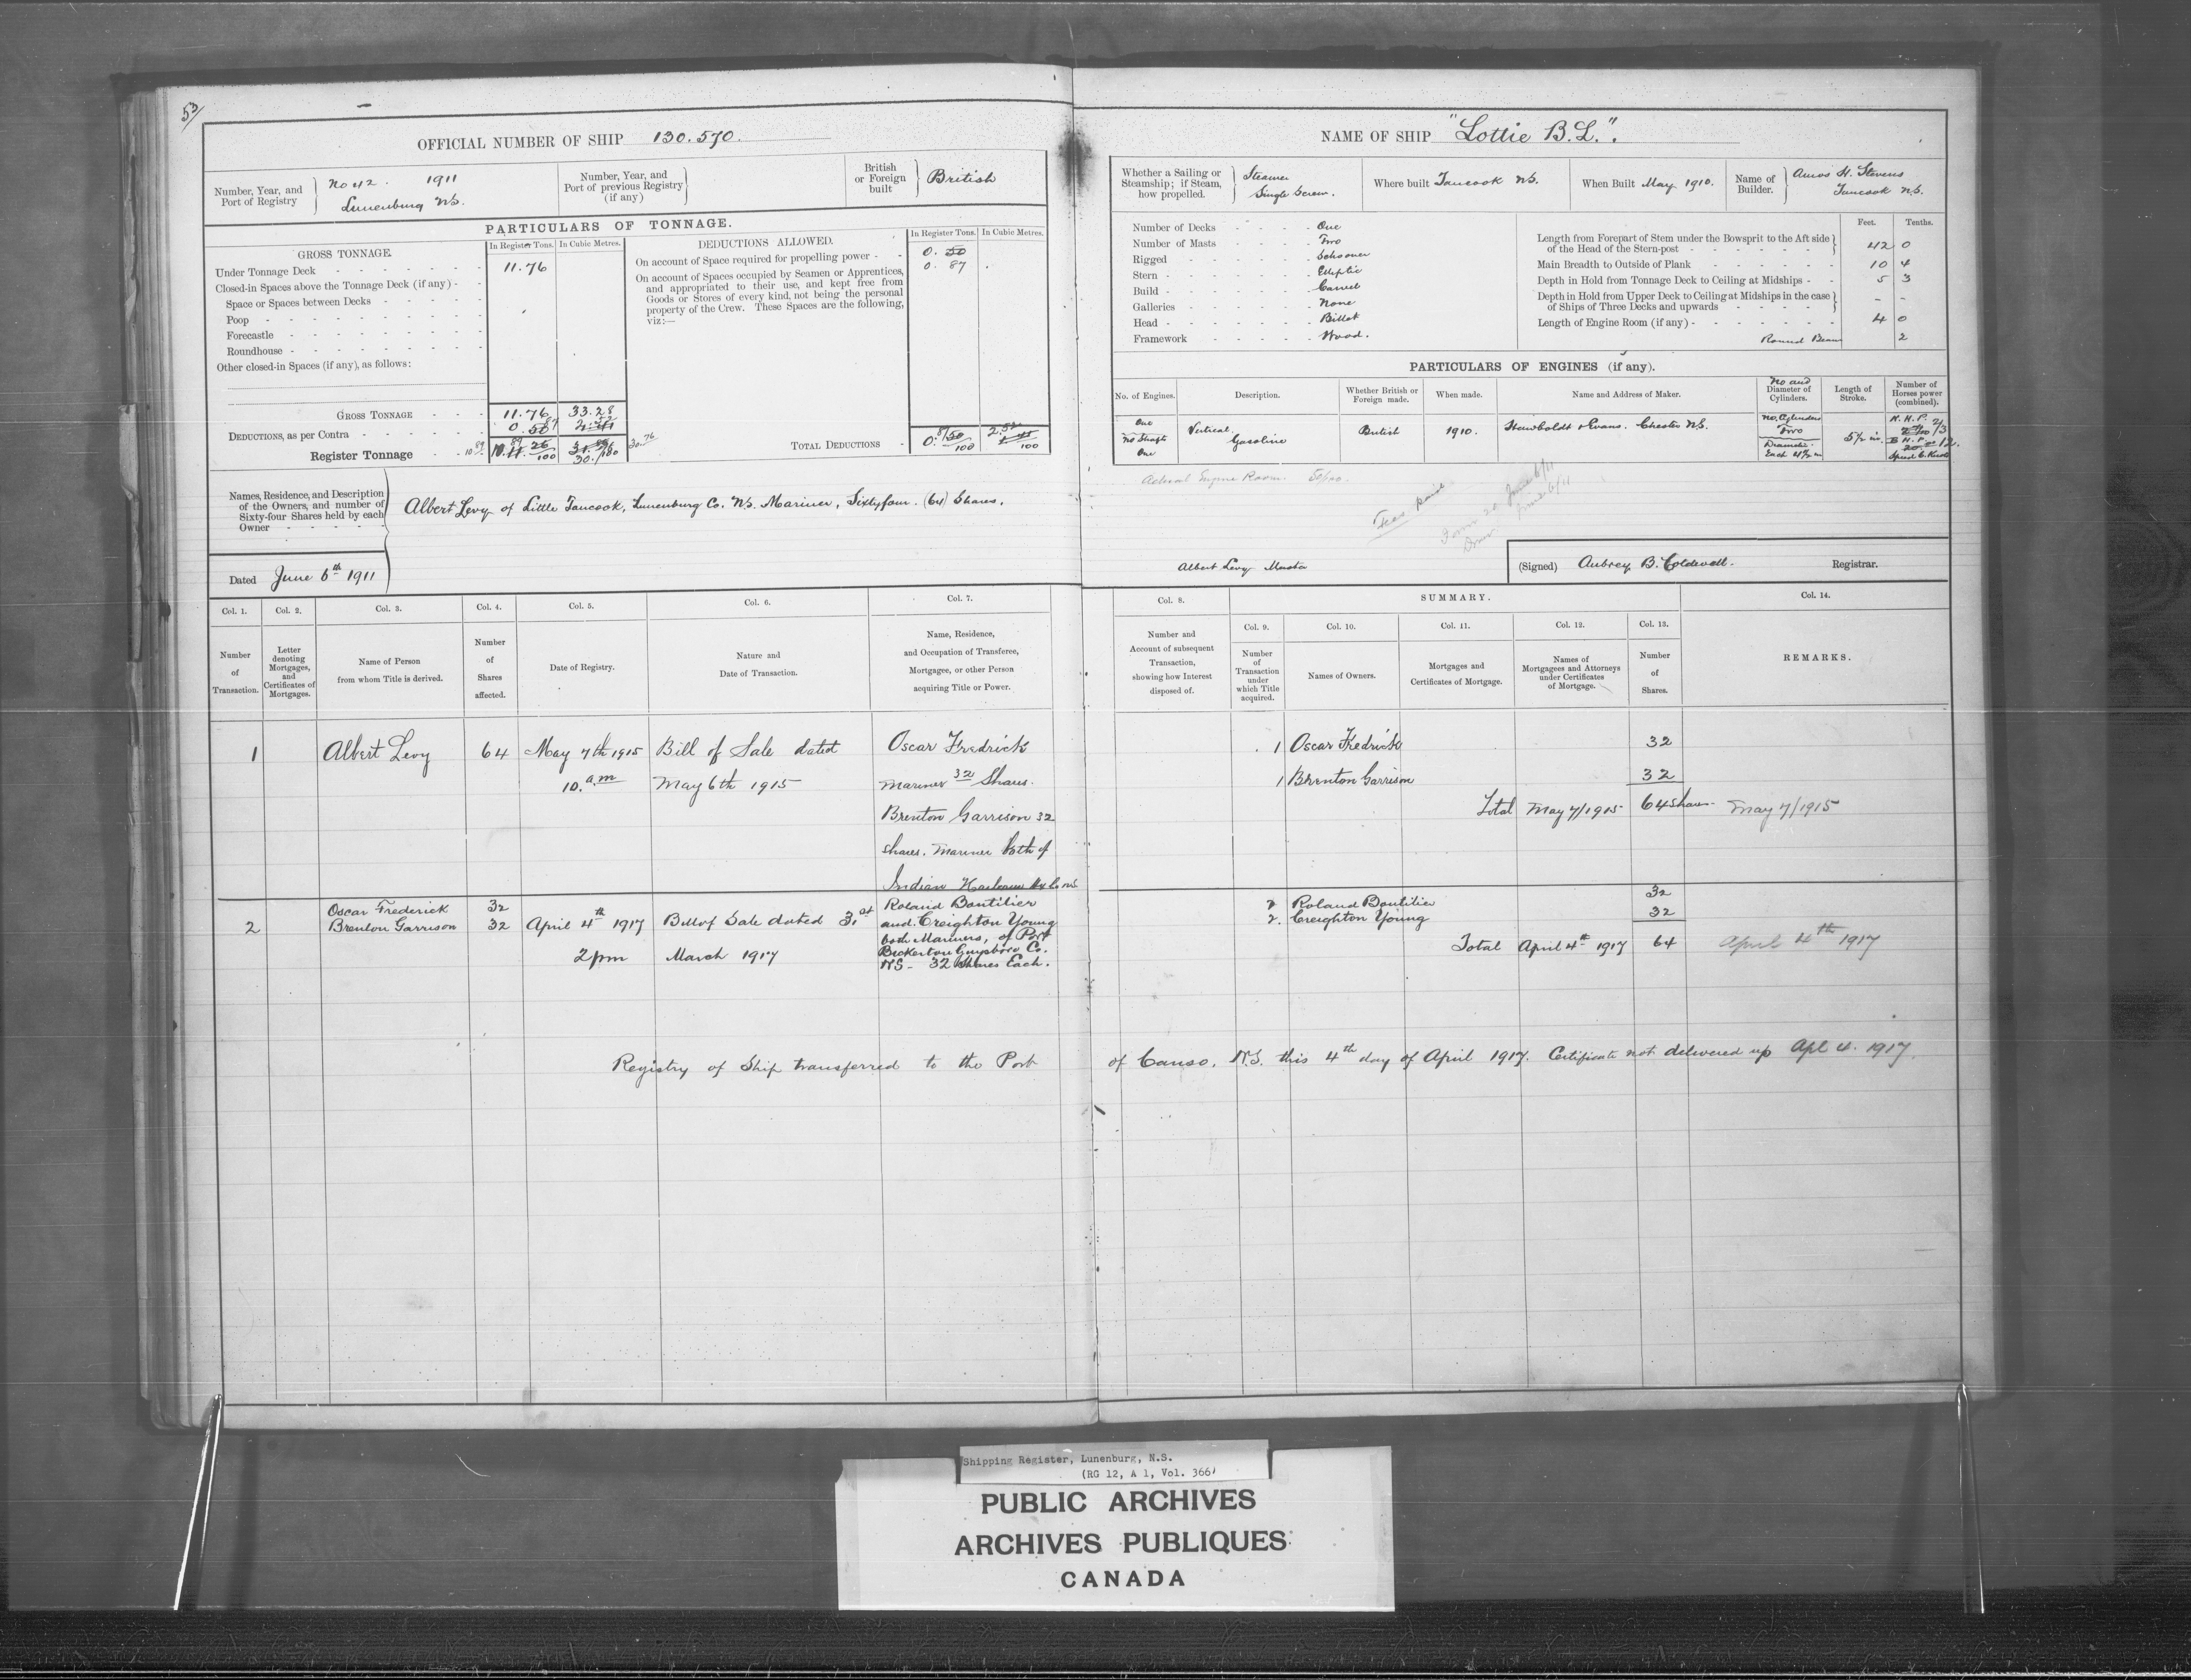 53/
OFFICIAL NUMBER OF SHIP 130.570.
Number, Year, and Port of Registry
No 42. 1911
Lunenburg NS.
Number, Year, and Port of previous Registry (if any)
British or Foreign built
British
PARTICULARS OF TONNAGE.
GROSS TONNAGE.
In Register Tons.
In Cubic Metres.
Under Tonnage Deck 11.76
Closed-in Spaces above the Tonnage Deck (if any)
Space or Spaces between Decks
Poop
Forecastle
Roundhouse
Other closed-in Spaces (if any), as follows:
GROSS TONNAGE 11.76 33.28
DEDUCTIONS, as per Contra 0.50 87
Register Tonnage
30.76
DEDUCTIONS ALLOWED.
In Register Tons.
In Cubic Metres.
On account of Space required for propelling power 0.50
0.87
On account of Spaces occupied by Seamen or Apprentices,
and appropriated to their use, and kept free from
Goods or Stores of every kind, not being the personal
property of the Crew. These Spaces are the following,
viz:—
TOTAL DEDUCTIONS 0.87 50/100 2.52
Names, Residence, and Description
of the Owners, and number of
Sixty-four Shares held by each
Owner
Albert Levy of Little Tancook, Lunenburg Co. NS. Mariner, Sixtyfour. (64) Shares.
Dated June 6th 1911
NAME OF SHIP "Lottie B.L.".
Whether a Sailing or Steamship; if Steam, how propelled.
Steamer
Single Screw.
Where built Tancook NS.
When Built May 1910.
Name of Builder.
Amos H. Stevens
Tancook N.S.
Number of Decks One
Number of Masts Two
Rigged Schooner
Stern Elliptic
Build Carvel
Galleries None
Head Billet
Framework Wood.
Feet. Tenths.
Length from Forepart of Stem under the Bowsprit to the Aft side
of the Head of the Stern-post 42 0
Main Breadth to Outside of Plank 10 4
Depth in Hold from Tonnage Deck to Ceiling at Midships 5 3
Depth in Hold from Upper Deck to Ceiling at Midships in the case
of Ships of Three Decks and upwards - -
Length of Engine Room (if any) 4 0
Round Beam 2
PARTICULARS OF ENGINES (if any).
No. of Engines.
Description.
Whether British or Foreign made.
When made.
Name and Address of Maker.
No and Diameter of Cylinders.
Length of Stroke.
Number of Horses power (combined).
One
No Shafts
One
Vertical
Gasoline
British
1910.
Hawboldt & Evans. Chester N.S.
No. Cylinders
Two
Diameter
Each 4 1/2 in
5 1/2 in.
N. H. P.
2/3
B H. P. 12.
Speed 6 Knots
Actual Engine Room. 50/100.
Fees paid
June 6/11
June 6/11
Albert Levy Master
(Signed) Aubrey B. Coldwell. Registrar.
Col. 1.
Number of Transaction.
Col. 2.
Letter denoting Mortgages, and Certificates of Mortgages.
Col. 3.
Name of Person from whom Title is derived.
Col. 4.
Number of Shares affected.
Col. 5.
Date of Registry.
Col. 6.
Nature and Date of Transaction.
Col. 7.
Name, Residence, and Occupation of Transferee, Mortgagee, or other Person acquiring Title or Power.
Col. 8.
Number and Account of subsequent Transaction, showing how Interest disposed of.
SUMMARY.
Col. 9.
Number of Transaction under which Title acquired.
Col. 10.
Names of Owners.
Col. 11.
Mortgages and Certificates of Mortgage.
Col. 12.
Names of Mortgagees and Attorneys under Certificates of Mortgage.
Col. 13.
Number of Shares.
Col. 14.
REMARKS.
1 Albert Levy 64 May 7th 1915 Bill of Sale dated Oscar Fredrick
10. a.m May 6th 1915 Mariner 32 Shares.
Brenton Garrison 32
shares. Mariner both of
Indian Harbour Hx Co NS
1 Oscar Fredrick 32
1 Brenton Garrison 32
Total May 7/1915 64 shares May 7/1915
2 Oscar Frederick 32
Brenton Garrison 32 April 4th 1917 Bill of Sale dated 31st
2 pm March 1917
Roland Boutilier
and Creighton Young
both Mariners, of Port
Bickerton Guysboro Co.
NS - 32 Shares Each.
2 Roland Boutilier 32
2. Creighton Young 32
Total April 4th 1917 64 April 4th 1917
Registry of Ship transferred to the Port of Canso. N.S. this 4th day of April 1917. Certificate not delivered up Apl 4. 1917.
Shipping Register, Lunenburg, N.S.
(RG 12, A 1, Vol. 366)
PUBLIC ARCHIVES
ARCHIVES PUBLIQUES
CANADA